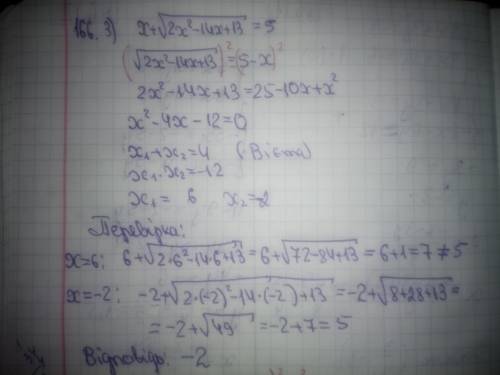 166. 3) x+√2x²-14x+13 = 5
(√2x²-14x+13)²=(5-x)²
2x²-14x+13=25-10x+x²
x²-4x-12=0
x₁+x₂=4 (Вієта)
x₁·x₂=-12
x₁= 6 x₂=-2
Перевірка:
x=6; 6+√2·6²-14·6+13 = 6+√72-84+13 = 6+1=7≠5
x=-2; -2+√2·(-2)²-14·(-2)+13 = -2+√8+28+13 =
= -2+√49 = -2+7 = 5
Відповідь: -2